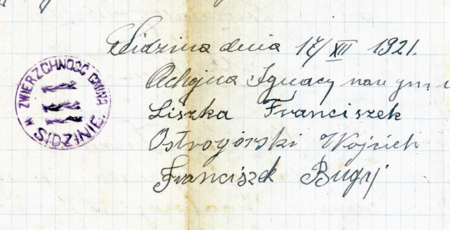 ZWIERZCHNOŚĆ GMINNA
W SIDZINIE.
Sidzina dnia 17/XII 1921.
Ignacy
Liszka Franciszek
Ostrogórski Wojciech
Franciszek Bugyj